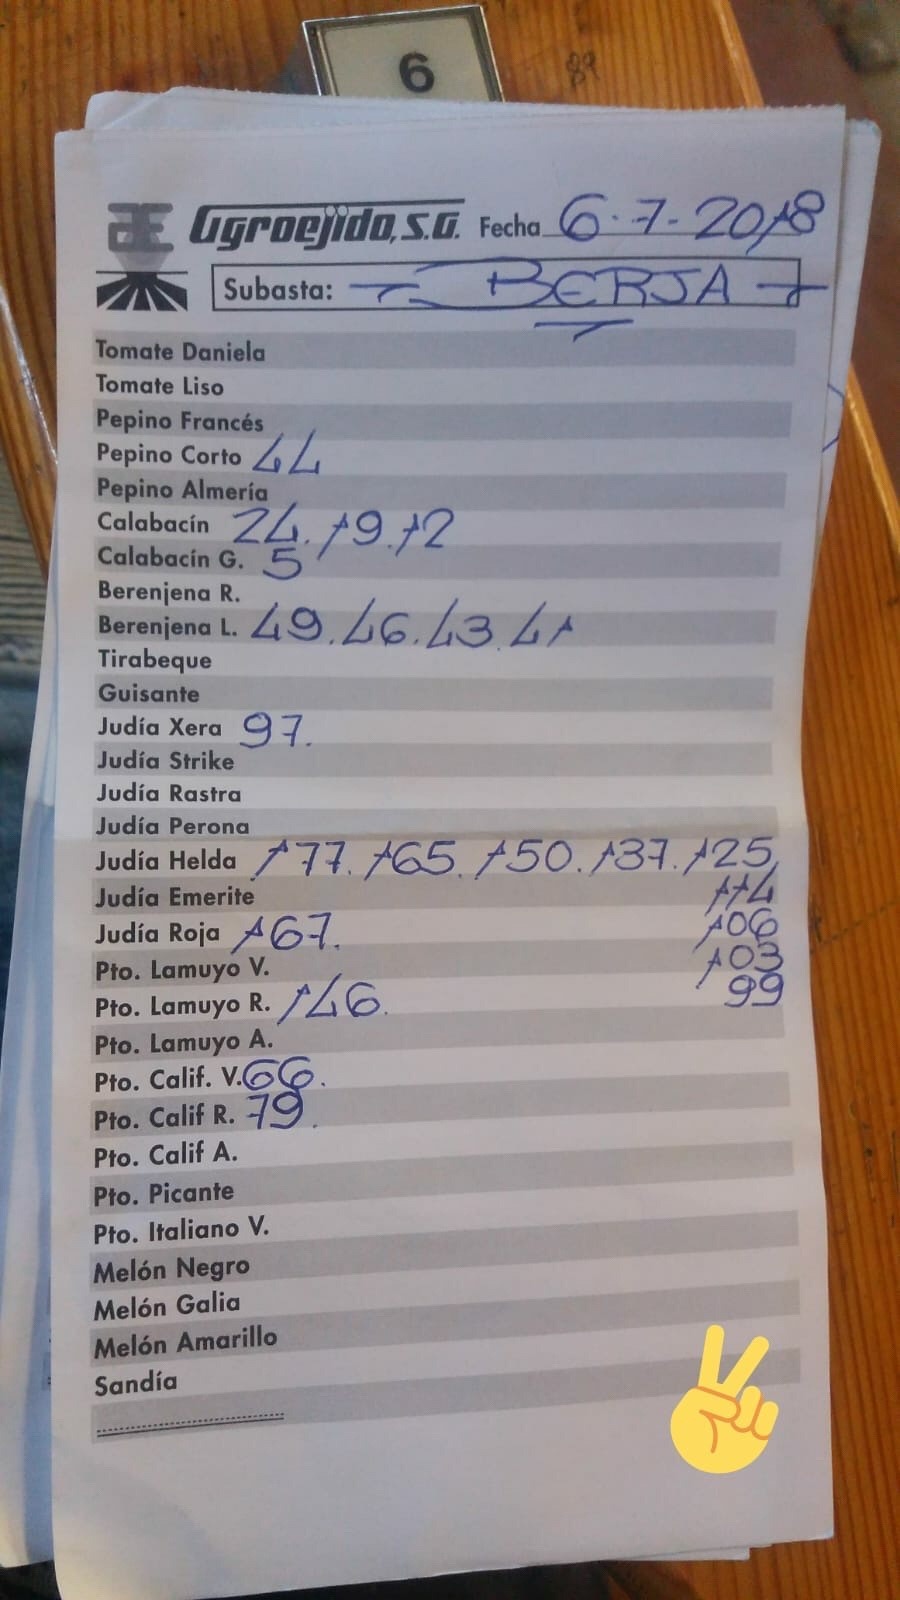 6 89
Agroejido, S.A. Fecha 6-7-2018
Subasta: BERJA
Tomate Daniela
Tomate Liso
Pepino Francés
Pepino Corto 44
Pepino Almería
Calabacín 24. 19. 12
Calabacín G. 5
Berenjena R.
Berenjena L. 49. 46. 43. 41
Tirabeque
Guisante
Judía Xera 97.
Judía Strike
Judía Rastra
Judía Perona
Judía Helda 177. 165. 150. 137. 125
Judía Emerite 114
Judía Roja 167. 106
Pto. Lamuyo V. 103
Pto. Lamuyo R. 146. 99
Pto. Lamuyo A.
Pto. Calif. V. 66.
Pto. Calif R. 79.
Pto. Calif A.
Pto. Picante
Pto. Italiano V.
Melón Negro
Melón Galia
Melón Amarillo
Sandía